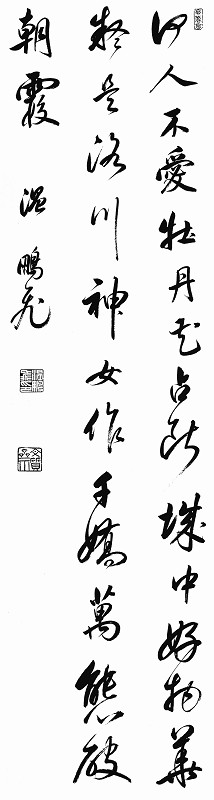 何人不愛牡丹花占斷城中好物華
疑是洛川神女作千嬌萬態破
朝霞 温鵬飛